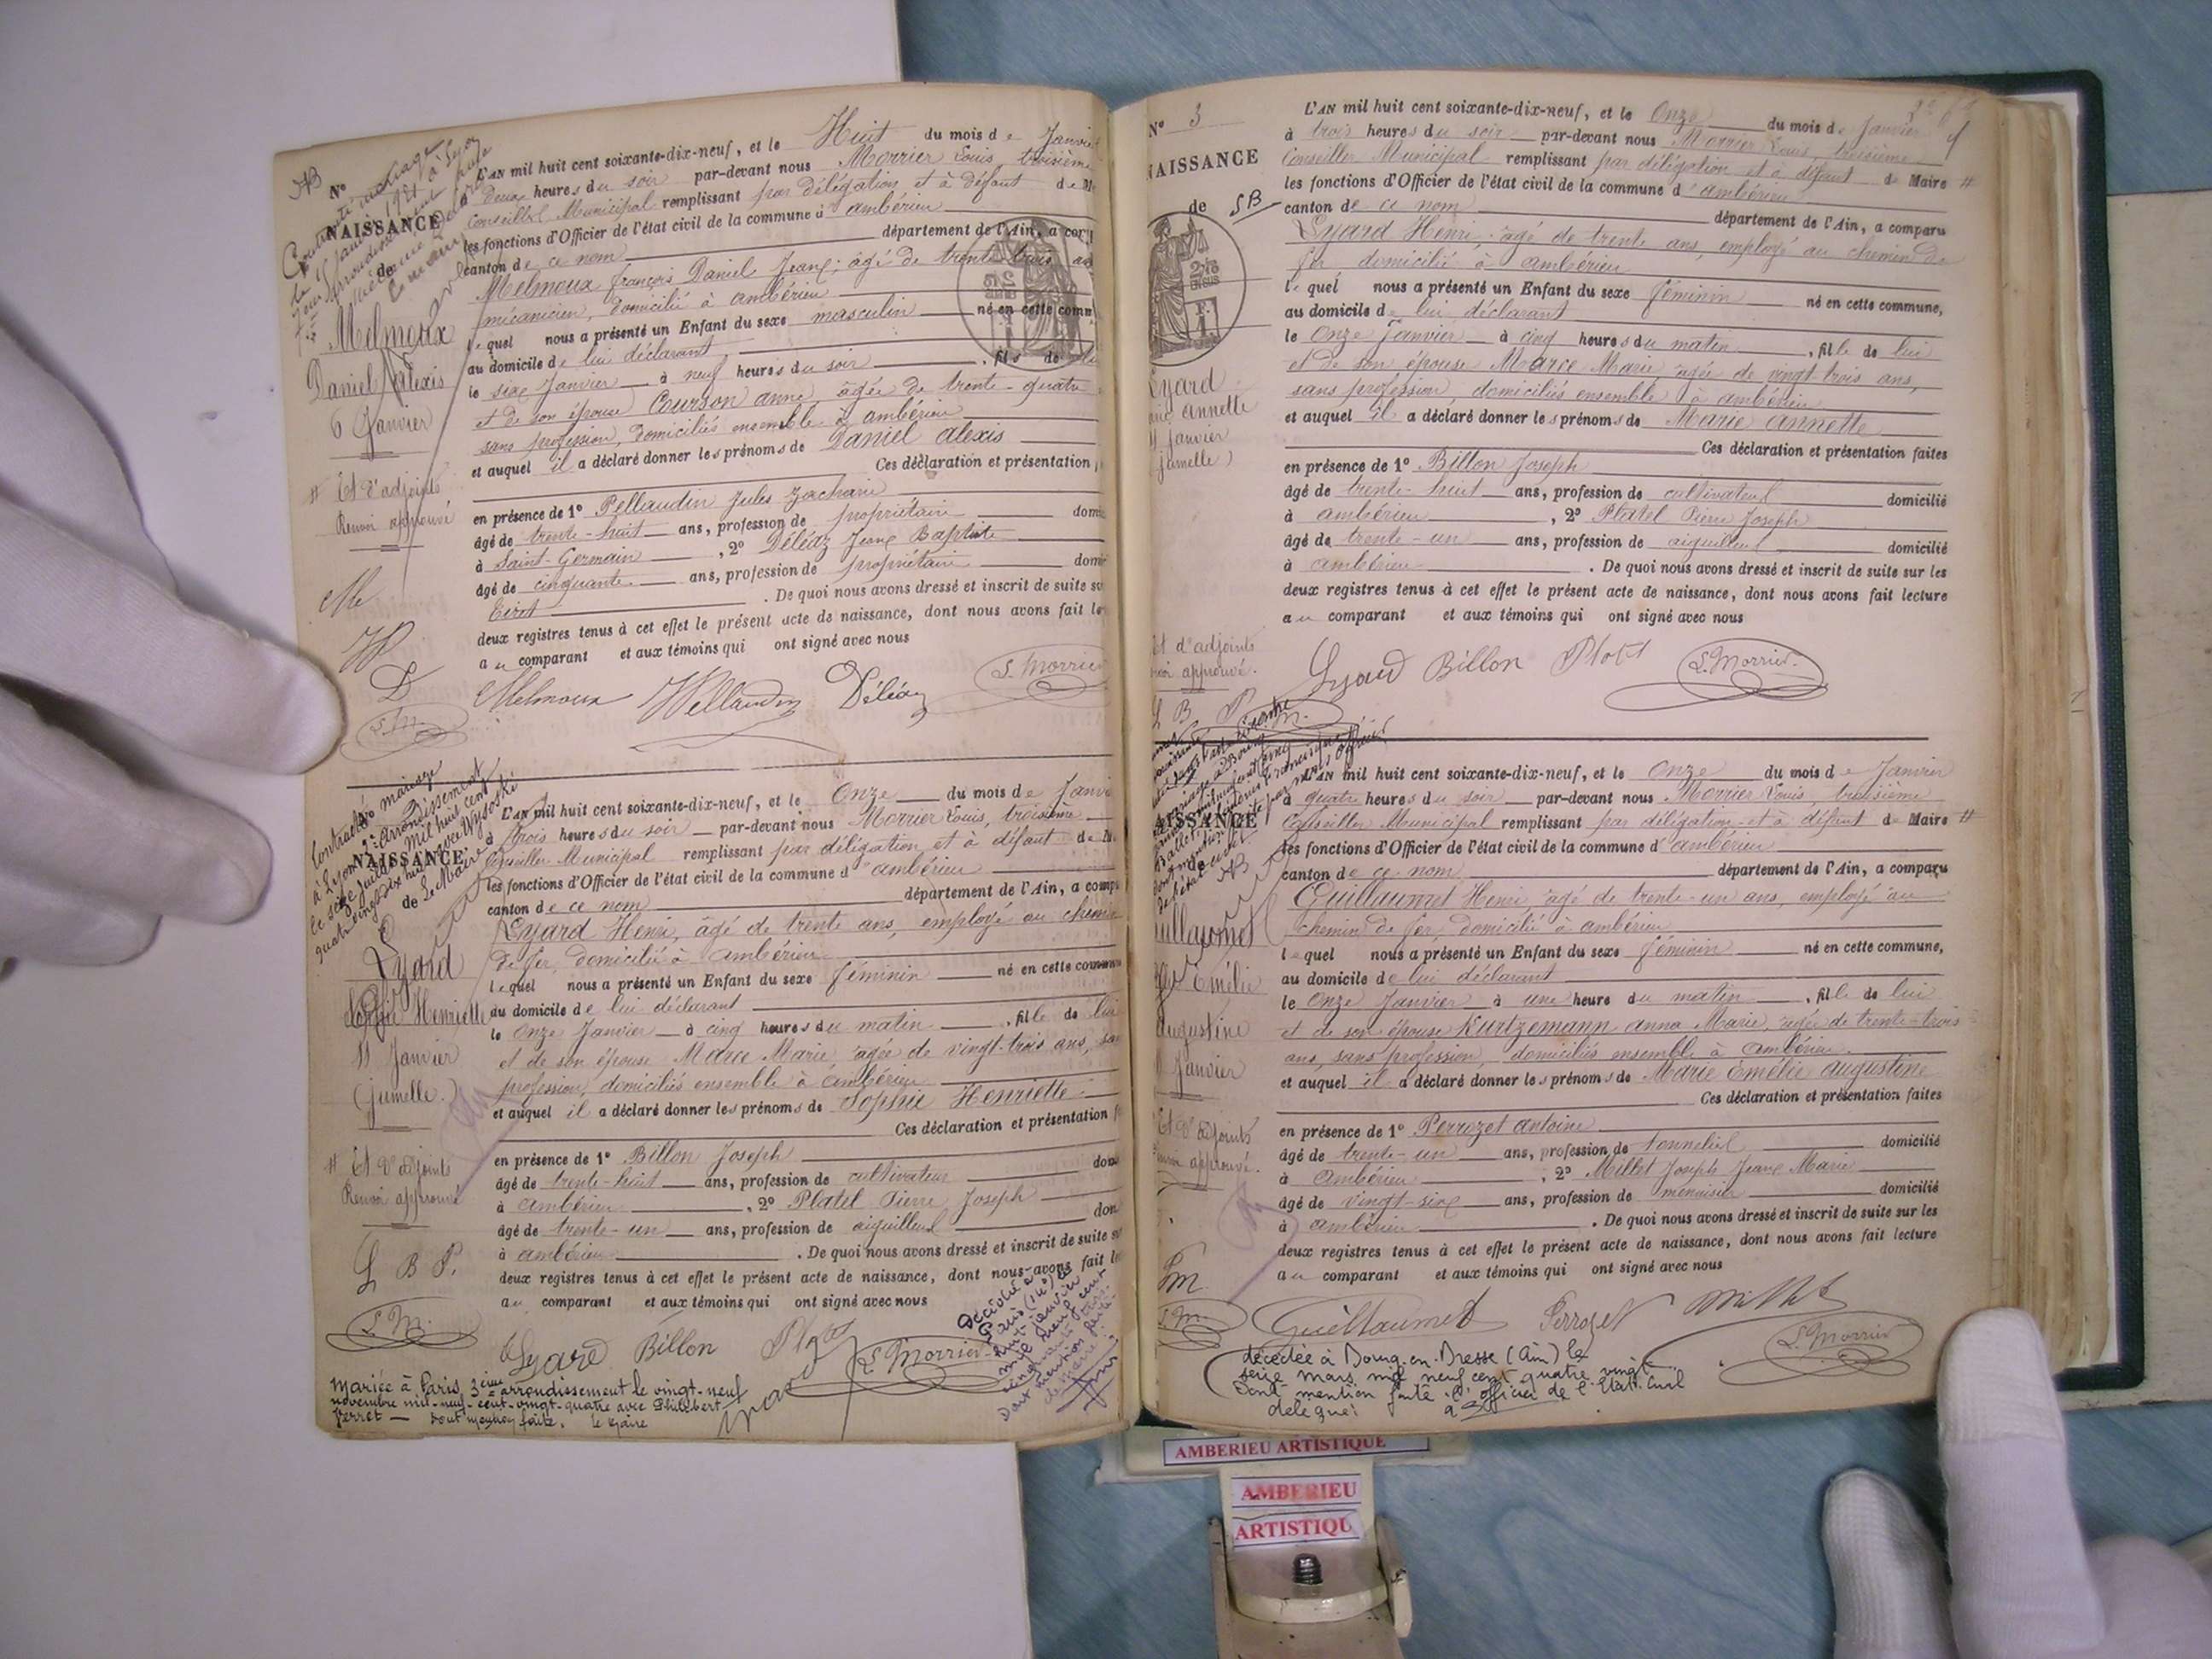 NB
Nº
NAISSANCE
de
Melmoux
Daniel Alexis
6 Janvier
# Et d'adjoints
Renvoi approuvé
L'AN mil huit cent soixante-dix-neuf, et le Huit du mois de Janvier
à Deux heures du soir par-devant nous Morrier Louis, troisième
Conseiller Municipal remplissant par délégation et à défaut de
les fonctions d'Officier de l'état civil de la commune d'ambérieu
canton de ce nom département de l'Ain, a
Melmoux françois Daniel Jean, âgé de trente trois
mécanicien, domicilié à ambérieu
lequel nous a présenté un Enfant du sexe masculin né en cette
au domicile de lui déclarant
le six Janvier à neuf heures du soir , fils de
et de son épouse Courson anne, âgée de trente-quatre
sans profession, domiciliés ensemble à ambérieu
et auquel il a déclaré donner les prénoms de Daniel alexis
Ces déclaration et présentation
en présence de 1º Pellaudin Jules Zacharie
âgé de trente-huit ans, profession de propriétaire
à Saint-Germain , 2º Déléaz Jean Baptiste
âgé de cinquante ans, profession de propriétaire
. De quoi nous avons dressé et inscrit de suite
deux registres tenus à cet effet le présent acte de naissance, dont nous avons fait
au comparant et aux témoins qui ont signé avec nous
Melmoux Pellaudin Déléaz L. Morrier
Contracté mariage
à Lyon 2e arrondissement
le seize juillet mil huit cent
NAISSANCE
de
Lyard
Sophie Henriette
11 Janvier
(jumelle.)
# Et d'adjoints
Renvoi approuvé
L B P.
L. M.
L'AN mil huit cent soixante-dix-neuf, et le Onze du mois de
à trois heures du soir par-devant nous Morrier Louis, troisième
Conseiller Municipal remplissant par délégation et à défaut de
les fonctions d'Officier de l'état civil de la commune d'ambérieu
canton de ce nom département de l'Ain, a
Lyard Henri, âgé de trente ans, employé au
de fer, domicilié à ambérieu
lequel nous a présenté un Enfant du sexe féminin né en cette commune
au domicile de lui déclarant
le Onze Janvier à cinq heures du matin , fille de lui
et de son épouse Marce Marie âgée de vingt-trois ans,
profession, domiciliés ensemble à ambérieu
et auquel il a déclaré donner les prénoms de Sophie Henriette
Ces déclaration et présentation
en présence de 1º Billon Joseph
âgé de trente-huit ans, profession de cultivateur
à ambérieu , 2º Platel Pierre Joseph
âgé de trente-un ans, profession de aiguilleur
à ambérieu . De quoi nous avons dressé et inscrit de suite
deux registres tenus à cet effet le présent acte de naissance, dont nous avons fait
au comparant et aux témoins qui ont signé avec nous
Lyard Billon Platel L. Morrier
Mariée à Paris, 3ème arrondissement le vingt-neuf
novembre mil-neuf-cent-vingt-quatre avec Philibert
Perret — Dont mention faite. le Maire
Nº 3
NAISSANCE
de SB
Lyard
annette
Janvier
(jumelle)
Et d'adjoints
approuvé.
L'AN mil huit cent soixante-dix-neuf, et le Onze du mois de Janvier
à trois heures du soir par-devant nous Morrier Louis, troisième
Conseiller Municipal remplissant par délégation et à défaut de Maire #
les fonctions d'Officier de l'état civil de la commune d'ambérieu
canton de ce nom département de l'Ain, a comparu
Lyard Henri, âgé de trente ans, employé au chemin de
fer domicilié à ambérieu
lequel nous a présenté un Enfant du sexe féminin né en cette commune,
au domicile de lui déclarant
le Onze Janvier à cinq heures du matin , fille de lui
et de son épouse Marce Marie âgée de vingt trois ans,
sans profession, domiciliés ensemble à ambérieu
et auquel il a déclaré donner les prénoms de Marie annette
Ces déclaration et présentation faites
en présence de 1º Billon Joseph
âgé de trente-huit ans, profession de cultivateur domicilié
à ambérieu , 2º Platel Pierre Joseph
âgé de trente-un ans, profession de aiguilleur domicilié
à ambérieu . De quoi nous avons dressé et inscrit de suite sur les
deux registres tenus à cet effet le présent acte de naissance, dont nous avons fait lecture
au comparant et aux témoins qui ont signé avec nous
Lyard Billon Platel L. Morrier
NAISSANCE
Guillaumet
Emélie
Augustine
Janvier
Et d'adjoints
approuvé.
L'AN mil huit cent soixante-dix-neuf, et le Onze du mois de Janvier
à quatre heures du soir par-devant nous Morrier Louis, troisième
Conseiller Municipal remplissant par délégation et à défaut de Maire #
les fonctions d'Officier de l'état civil de la commune d'ambérieu
canton de ce nom département de l'Ain, a comparu
Guillaumet Henri, âgé de trente-un ans, employé au
chemin de fer, domicilié à ambérieu
lequel nous a présenté un Enfant du sexe féminin né en cette commune,
au domicile de lui déclarant
le Onze Janvier à une heure du matin , fille de lui
et de son épouse Kurtzemann anna Marie, âgée de trente-trois
ans, sans profession, domiciliés ensemble à ambérieu.
et auquel il a déclaré donner les prénoms de Marie Emélie augustine
Ces déclaration et présentation faites
en présence de 1º Perrozet antoine
âgé de trente-un ans, profession de tonnelier domicilié
à Ambérieu , 2º Millet Joseph Jean Marie
âgé de vingt-six ans, profession de menuisier domicilié
à ambérieu . De quoi nous avons dressé et inscrit de suite sur les
deux registres tenus à cet effet le présent acte de naissance, dont nous avons fait lecture
au comparant et aux témoins qui ont signé avec nous
Guillaumet Perrozet Millet L. Morrier
décédée à Bourg-en-Bresse (Ain) le
seize mars mil neuf cent quatre vingt
Dont mention faite. L'officier de l'Etat Civil
délégué:
AMBERIEU ARTISTIQUE
AMBERIEU
ARTISTIQU